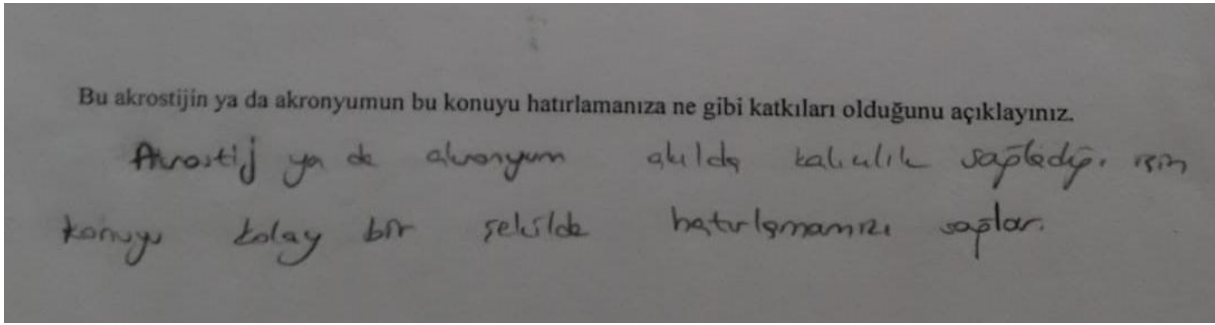 Bu akrostijin ya da akronyumun bu konuyu hatırlamanıza ne gibi katkıları olduğunu açıklayınız.
Akrostij ya da akronyum akılda kalıcılık sağladığı için
konuyu kolay bir şekilde hatırlamamızı sağlar.